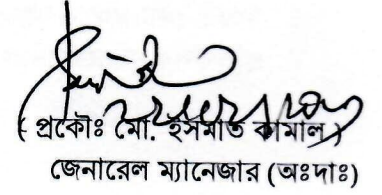 ( প্রকৌঃ মো. ইসমাত কামাল )
জেনারেল ম্যানেজার (অঃদাঃ)